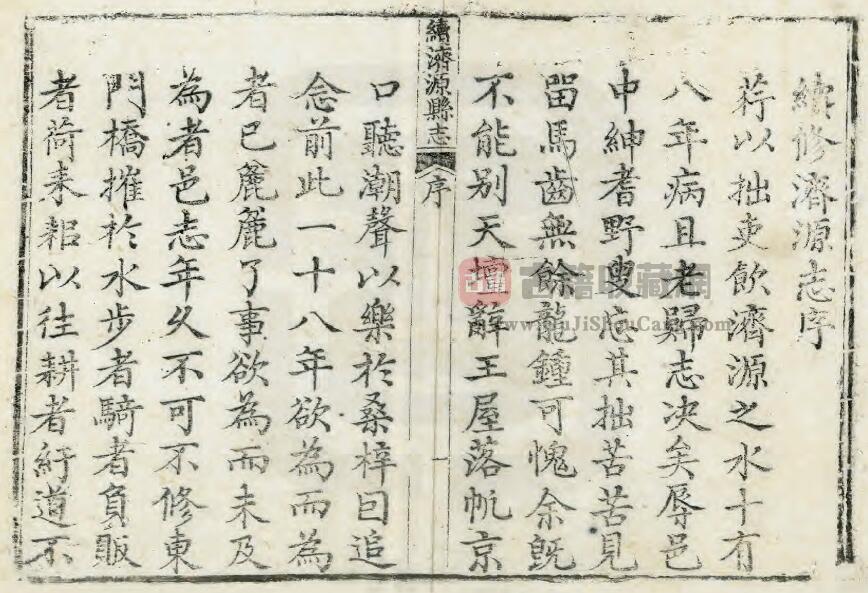 續修濟源志序
荇以拙吏飲濟源之水十有
八年病且老歸志决矣辱邑
中紳耆野叟忘其拙苦苦見
留馬齒無餘龍鍾可愧余旣
不能别天壇辭王屋落帆京
續濟源縣志
序
一
口聽潮聲以樂於桑梓囙追
念前此一十八年欲為而為
者已麄麄了事欲為而未及
為者邑志年久不可不修東
門橋摧於水步者騎者負販
者荷耒耜以往耕者紆道不
古籍收藏網
www.GuJiShouCang.com